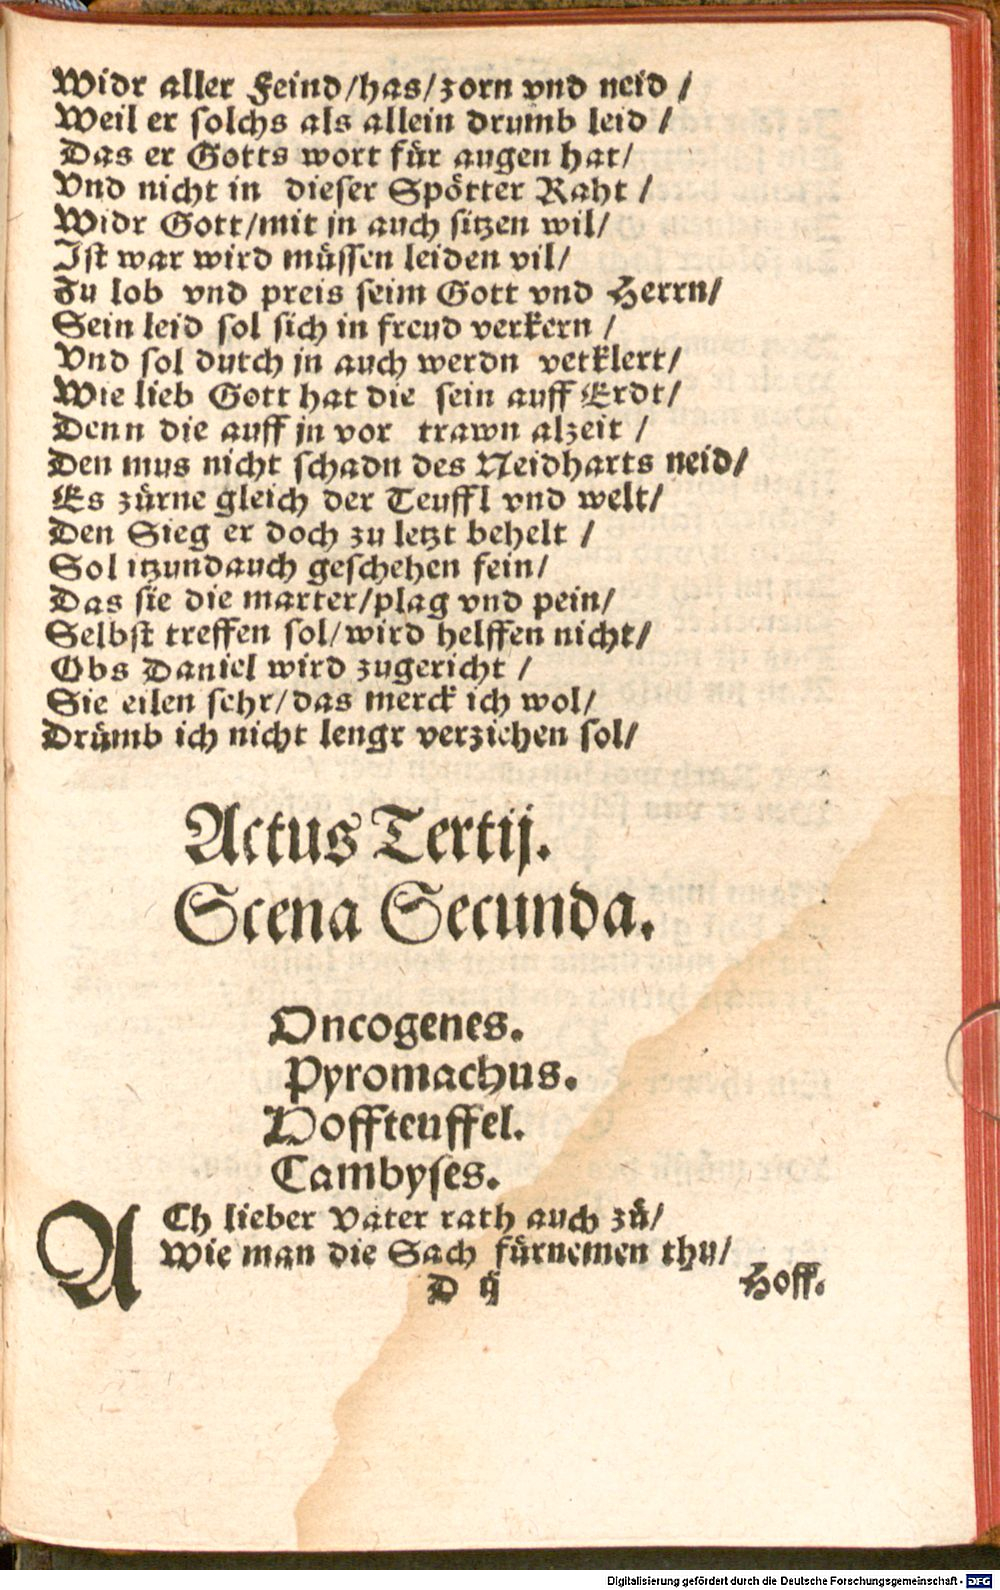 Widr aller Feind/has/zorn vnd neid /
Weil er solchs als allein drumb leid /
Das er Gotts wort für augen hat/
Vnd nicht in dieser Spötter Raht /
Widr Gott/mit jn auch sitzen wil/
Ist war wird müssen leiden vil/
Zu lob vnd preis seim Gott vnd Herrn/
Sein leid sol sich in freud verkern /
Vnd sol durch jn auch werdn verklert/
Wie lieb Gott hat die sein auff Erdt/
Denn die auff jn vor trawn alzeit /
Den mus nicht schadn des Neidharts neid/
Es zürne gleich der Teuffl vnd welt/
Den Sieg er doch zu letzt behelt /
Sol itzundauch geschehen fein/
Das sie die marter/plag vnd pein/
Selbst treffen sol/wird helffen nicht/
Obs Daniel wird zugericht /
Sie eilen sehr/das merck ich wol/
Drümb ich nicht lengr verziehen sol/
Actus Tertij.
Scena Secunda.
Oncogenes.
Pyromachus.
Hoffteuffel.
Cambyses.
ACh lieber Vater rath auch zů/
Wie man die Sach fürnemen thu/
D ij
Hoff.
Digitalisierung gefördert durch die Deutsche Forschungsgemeinschaft - DFG